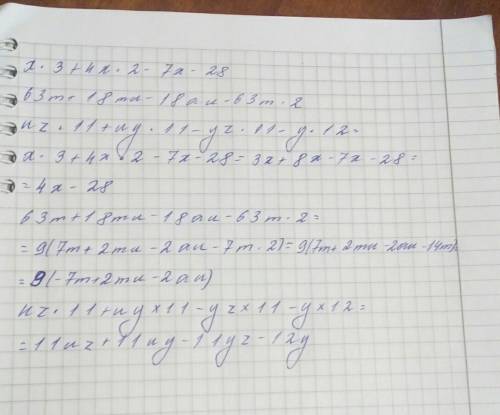 x · 3 + 4x · 2 - 7x - 28
63m + 18mn - 18an - 63m · 2
nz · 11 + ny · 11 - yz · 11 - y · 12 =
x · 3 + 4x · 2 - 7x - 28 = 3x + 8x - 7x - 28 =
= 4x - 28
63m + 18mn - 18an - 63m · 2 =
= 9(7m + 2mn - 2an - 7m · 2) = 9(7m + 2mn - 2an - 14m) =
= 9(-7m + 2mn - 2an)
nz · 11 + ny × 11 - yz × 11 - y × 12 =
= 11nz + 11ny - 11yz - 12y